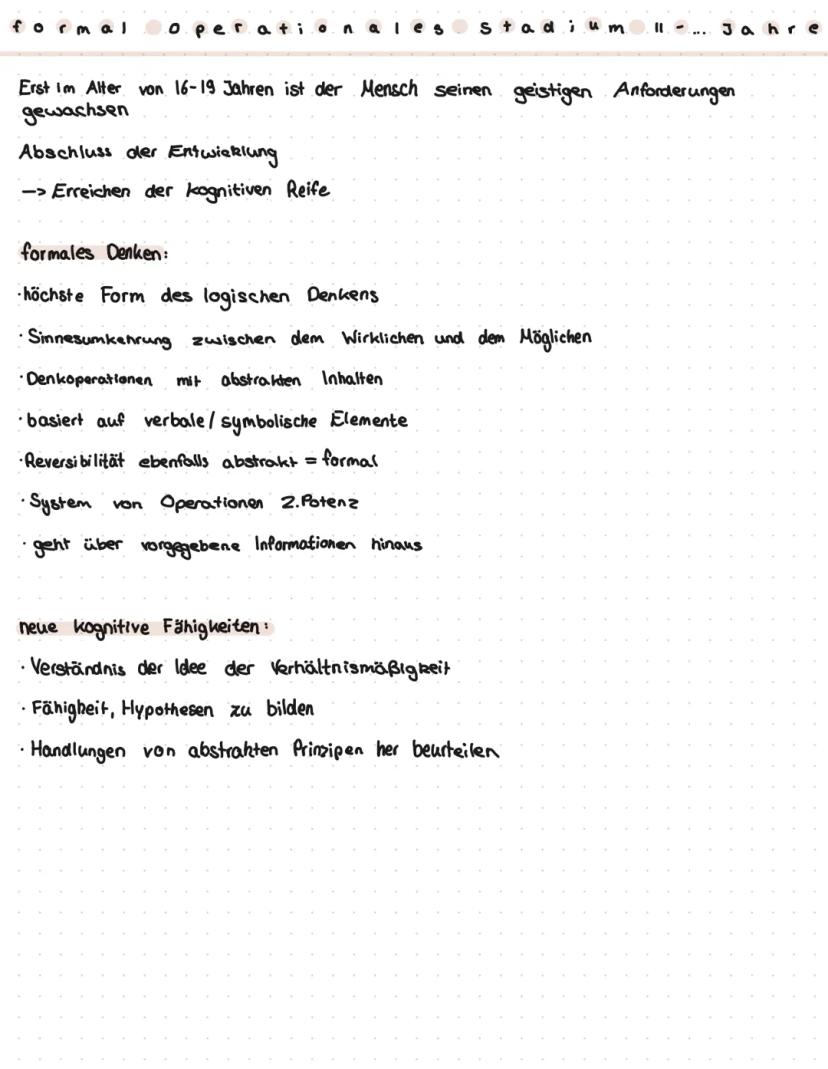 formal operationales Stadium 11-... Jahre
Erst im Alter von 16-19 Jahren ist der Mensch seinen geistigen Anforderungen
gewachsen
Abschluss der Entwicklung
—> Erreichen der kognitiven Reife
formales Denken:
·höchste Form des logischen Denkens
·Sinnesumkehrung zwischen dem Wirklichen und dem Möglichen
·Denkoperationen mit abstrakten Inhalten
·basiert auf verbale/symbolische Elemente
·Reversibilität ebenfalls abstrakt = formal
·System von Operationen 2.Potenz
·geht über vorgegebene Informationen hinaus
neue kognitive Fähigkeiten:
·Verständnis der Idee der Verhältnismäßigkeit
·Fähigkeit, Hypothesen zu bilden
·Handlungen von abstrakten Prinzipen her beurteilen